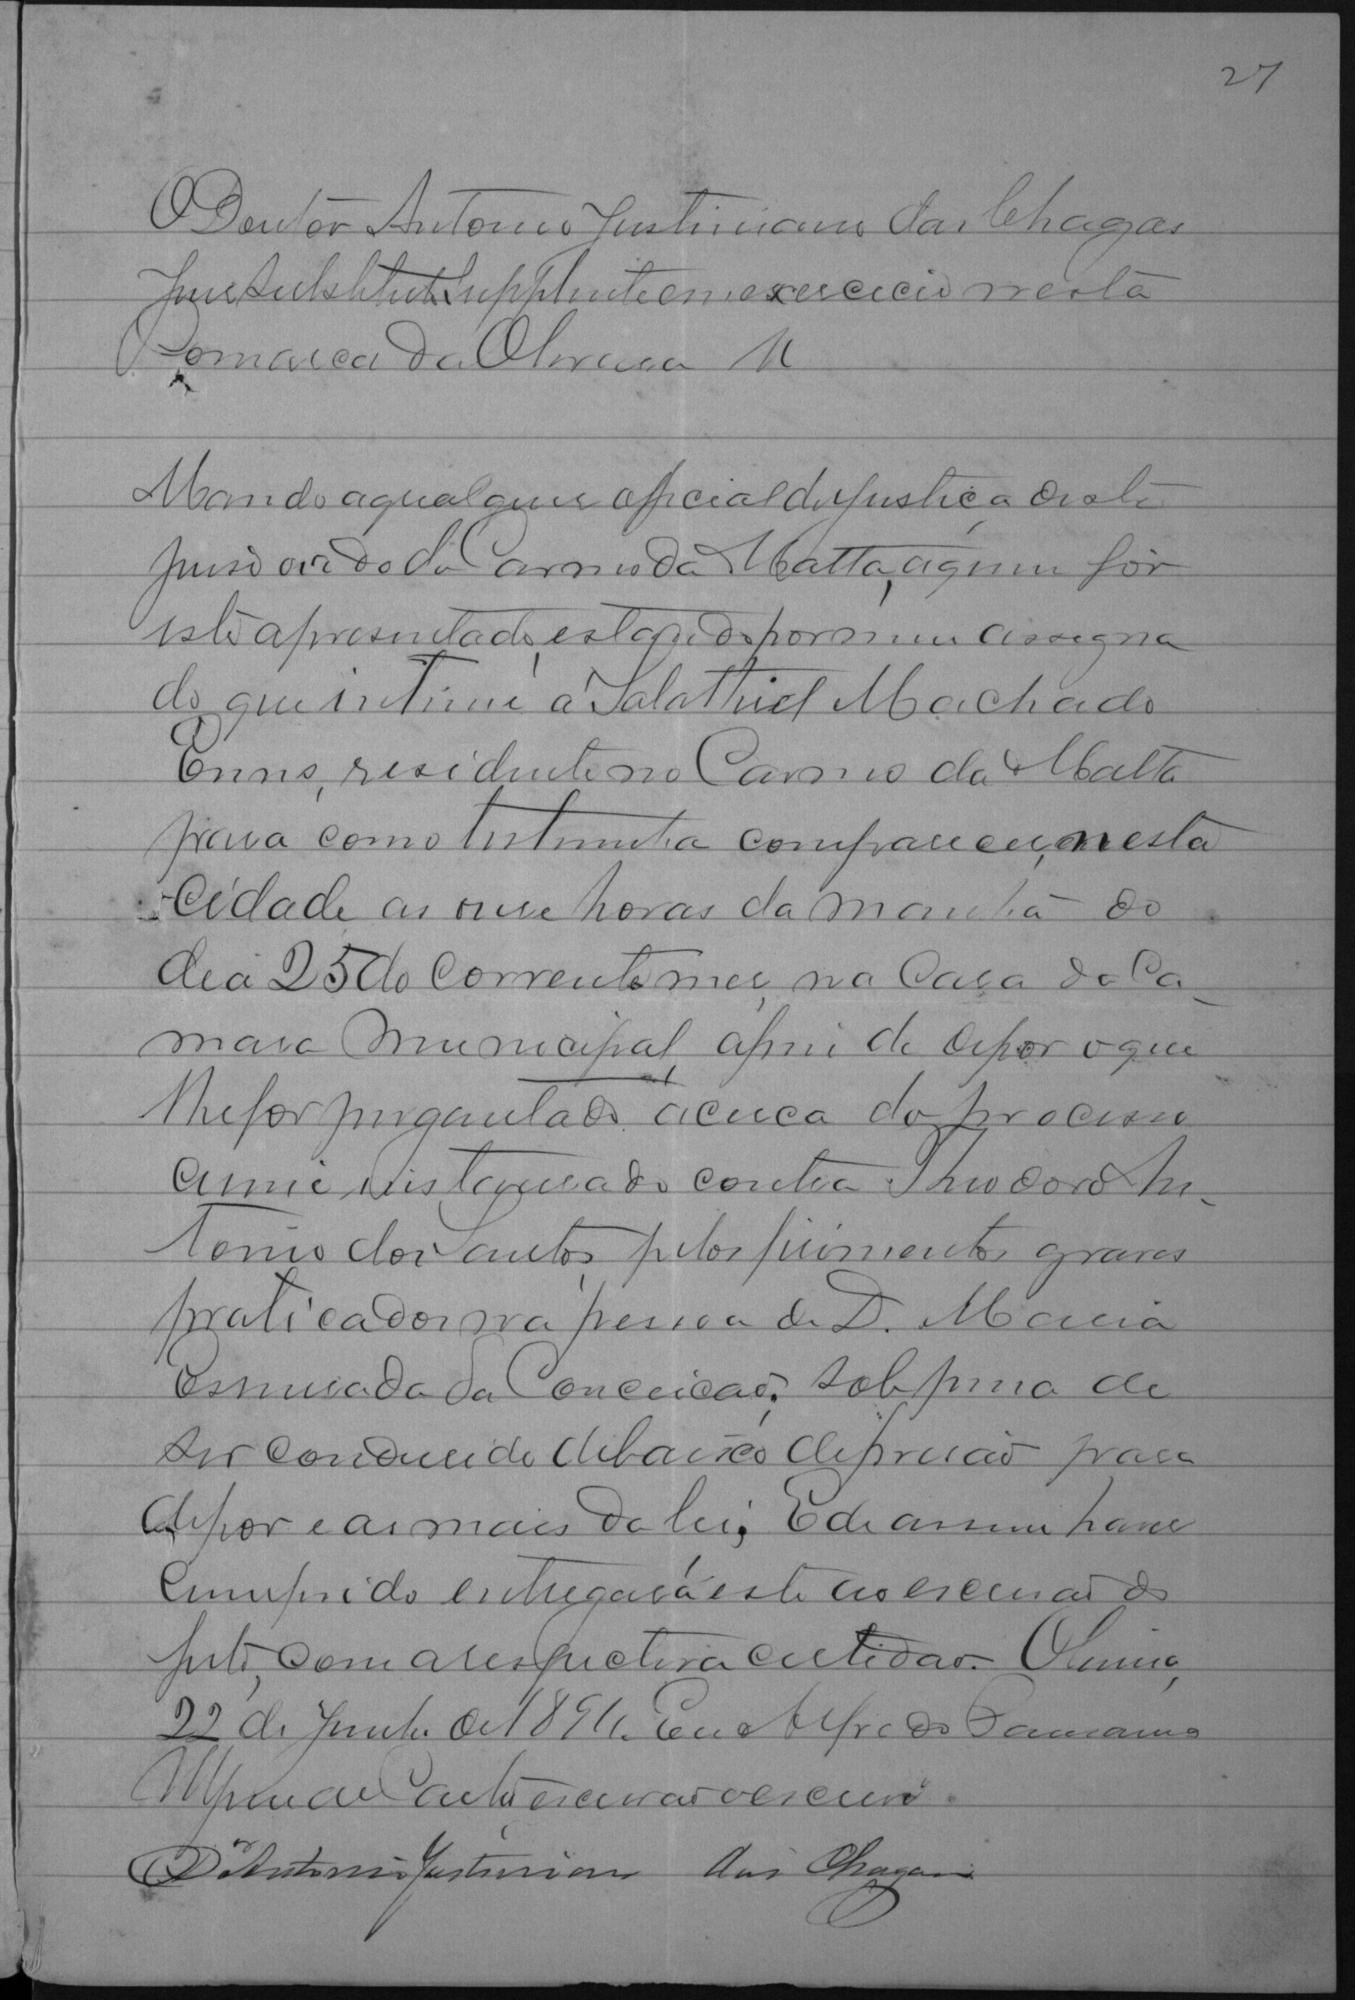 27
O Doutor Antonio Justiniano das Chagas
Juis Substituto Supplente em exercicio nesta
Comarca da Oliveira &
Mando a qualquer oficial de justiça deste
juiso ou do do Carmo da Matta, a quem for
este apresentado, estando por mim assigna
do que intime a Salathiel Machado
residente no Carmo da Matta
para como testemunha comparecer, nesta
Cidade as onse horas da manhã do
dia 25 do corrente mes, na Casa da Ca-
mara Municipal, afim de depor o que
lhe for perguntado acerca do processo
crime instaurado contra Theodoro An-
tonio dos Santos, pelos ferimentos graves
praticados na pessoa de D. Maria
da Conceicão, sob pena de
ser condusido debaixo de prisão para
depor e as mais da lei; E de assim haver
cumprido entregará este ao escrivão do
feito, com a respectiva certidão. Oliveira,
22 de Junho de 189 Eu Alfredo
de Castro escrivão o escrevi.
Dr Antonio Justiniano das Chagas